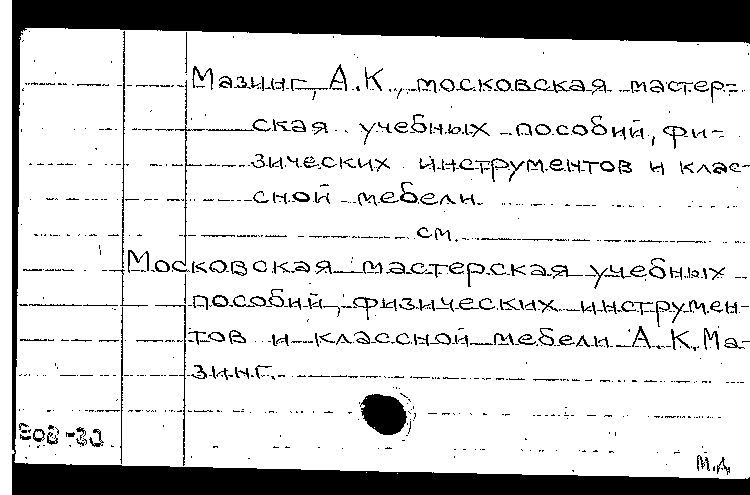 Мазинг, А.К., московская мастер=
ская учебных пособий, фи=
зических инструментов и клас-
сной мебели
см.
Московская мастерская учебных
пособий, физических инструмен-
тов и классной мебели А.К.Ма-
зинг.
М.А.